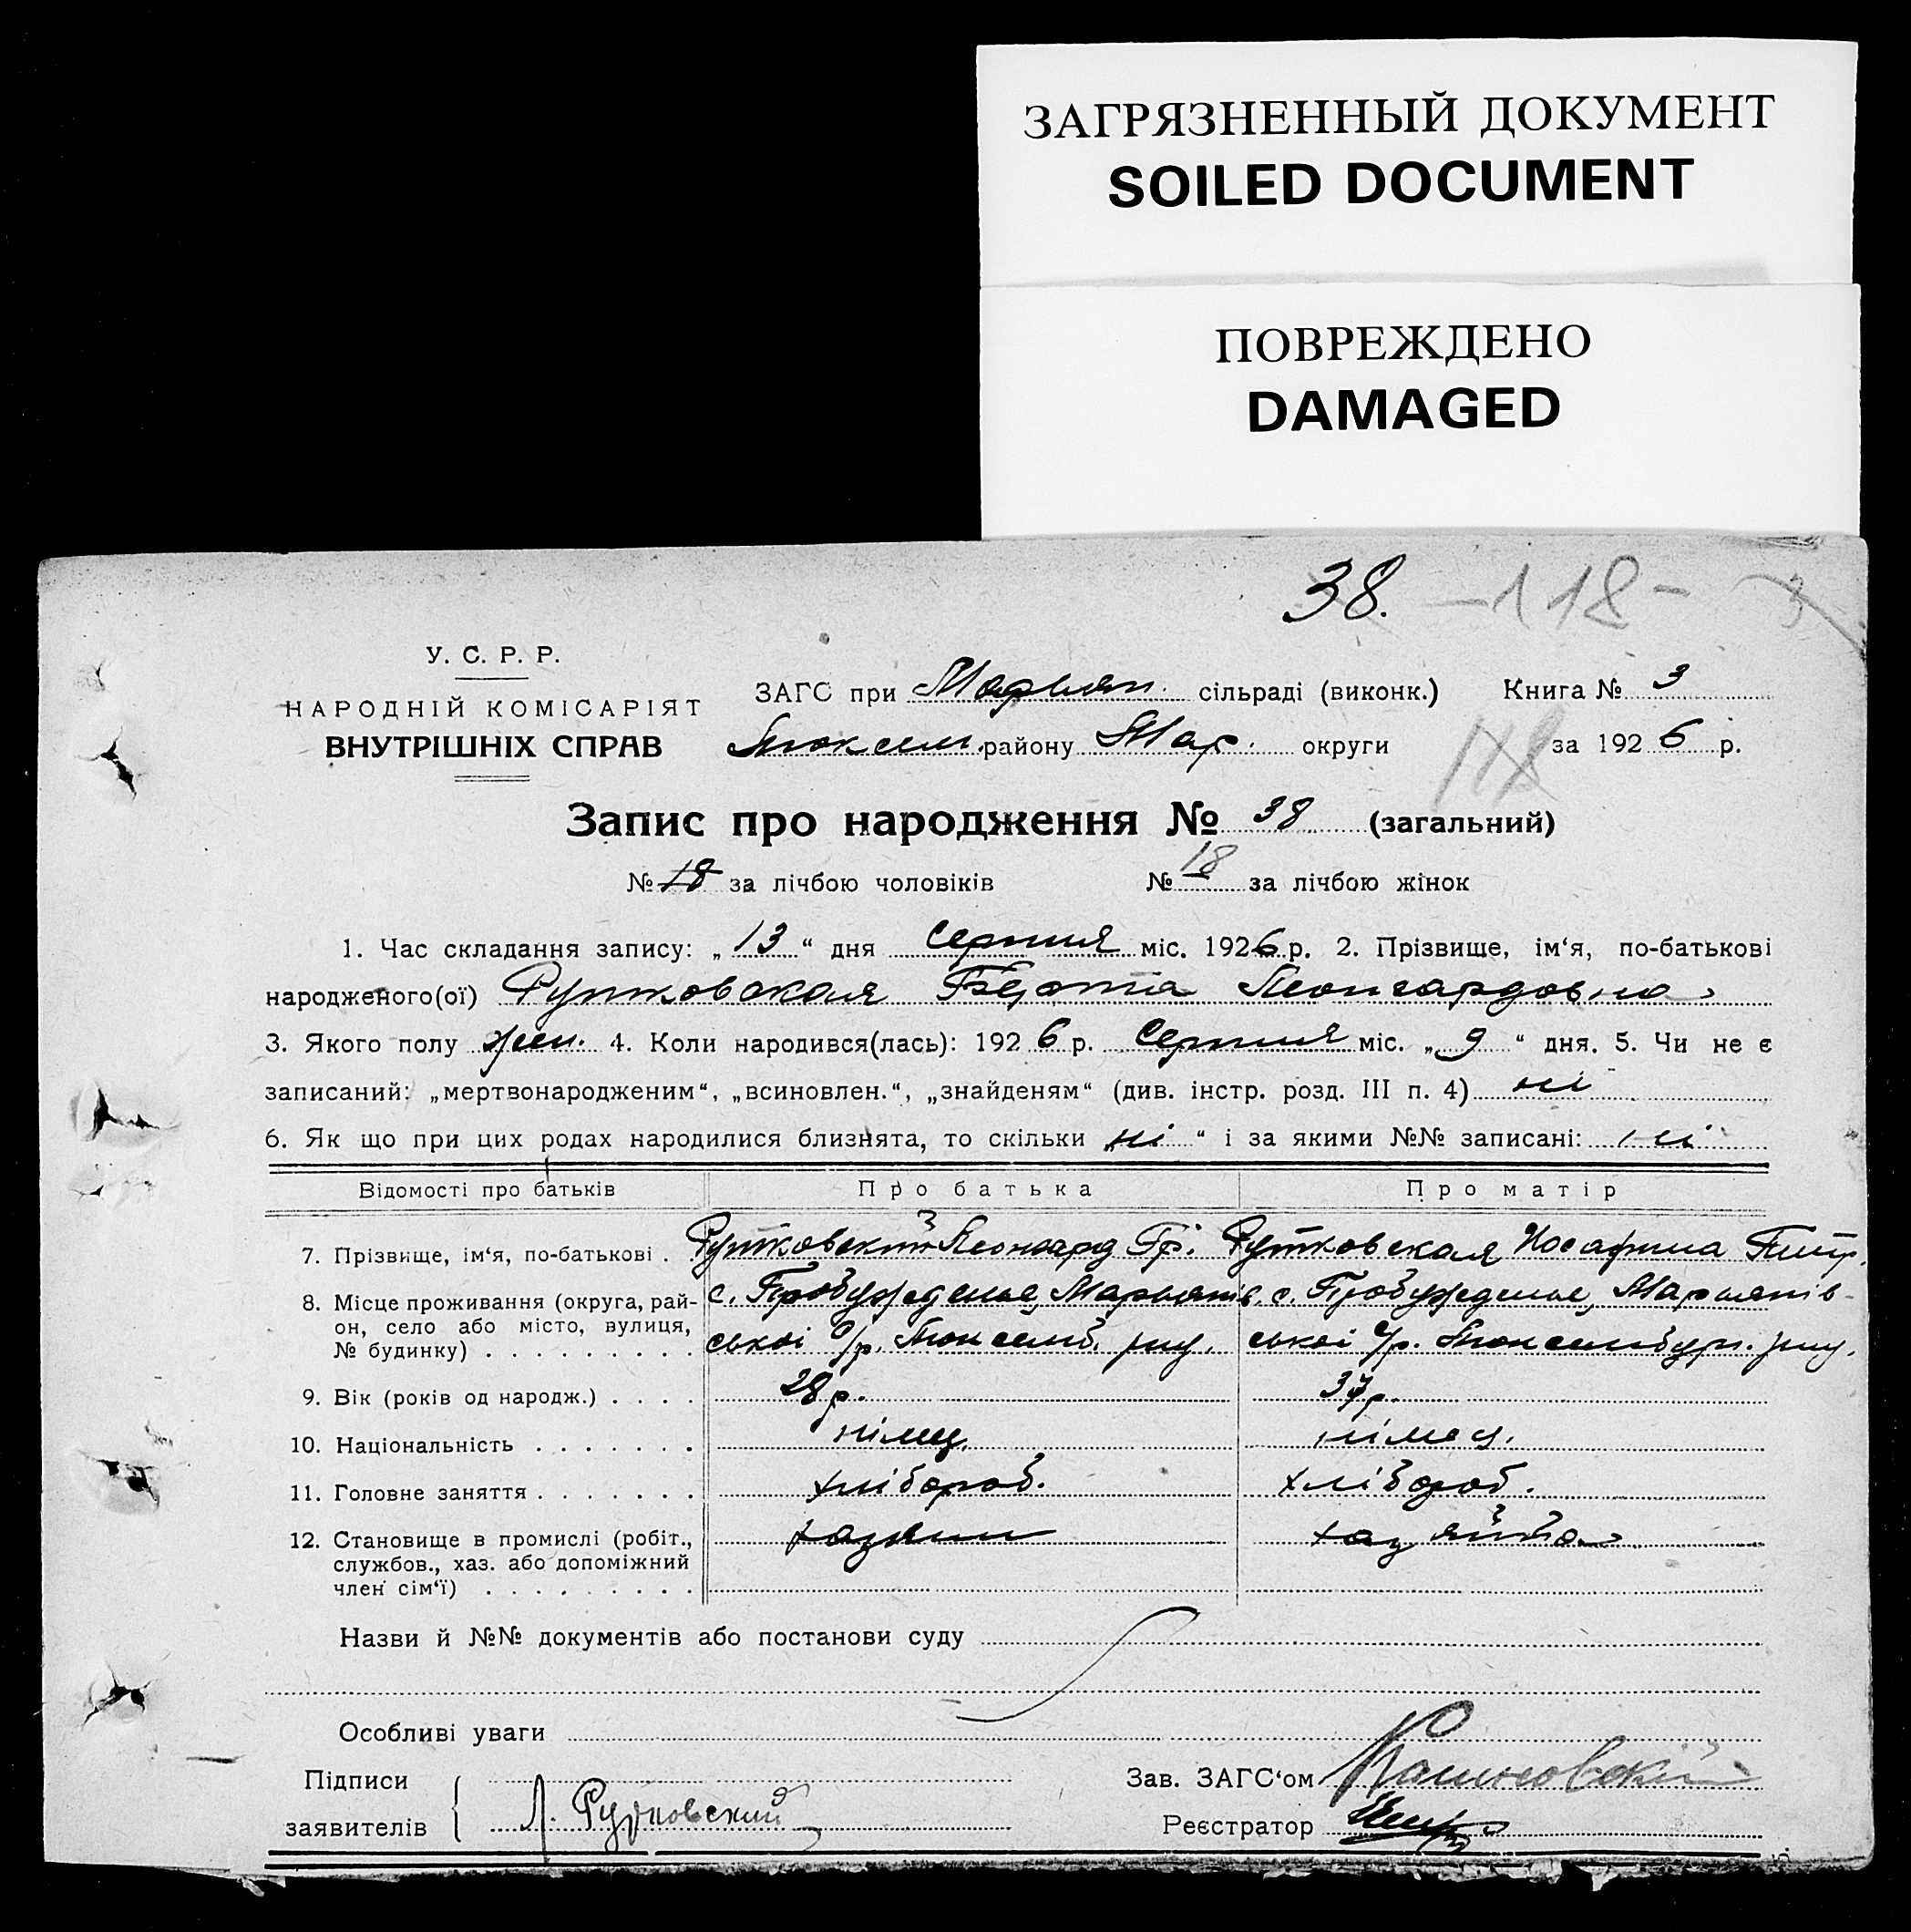 ЗАГРЯЗНЕННЫЙ ДОКУМЕНТ
SOILED DOCUMENT
ПОВРЕЖДЕНО
DAMAGED
38. -118- 3
У. С. Р. Р.
НАРОДНІЙ КОМІСАРІЯТ
ВНУТРІШНІХ СПРАВ
ЗАГС при Марьян. сільраді (виконк.) Книга № 3
району Мар. округи за 1926 р.
118
Запис про народження № 38 (загальний)
№ 18 за лічбою чоловіків № 18 за лічбою жінок
1. Час складання запису: „13“ дня Серпня міс. 1926 р. 2. Прізвище, ім‘я, по-батькові
народженого(ої) Рутковская Берта Леонгардовна
3. Якого полу жен. 4. Коли народився(лась): 1926 р. Серпня міс. „9“ дня. 5. Чи не є
записаний: „мертвонародженим“, „всиновлен.“, „знайденям“ (див. інстр. розд. III п. 4) ні
6. Як що при цих родах народилися близнята, то скільки „ні“ і за якими №№ записані: ні
Відомості про батьків Про батька Про матір
7. Прізвище, ім‘я, по-батькові . Рутковский Леонгард Гр. Рутковская Иосафина Питр.
8. Місце проживання (округа, рай- с. Пробужденье, Марьянів- с. Пробужденье, Марьянів-
он, село або місто, вулиця,
№ будинку) . . . . . . . . . ської с/р. ської с/р.
9. Вік (років од народж.) . . . . 28 р. 37 р.
10. Національність . . . . . . . німец німец.
11. Головне заняття . . . . . . . хлібороб. хлібороб.
12. Становище в промислі (робіт., хазяин хазяйка
службов., хаз. або допоміжний
член сім‘ї) . . . . . . . . .
Назви й №№ документів або постанови суду
Особливі уваги
Підписи Зав. ЗАГС‘ом
заявителів Л. Рутковский Реєстратор